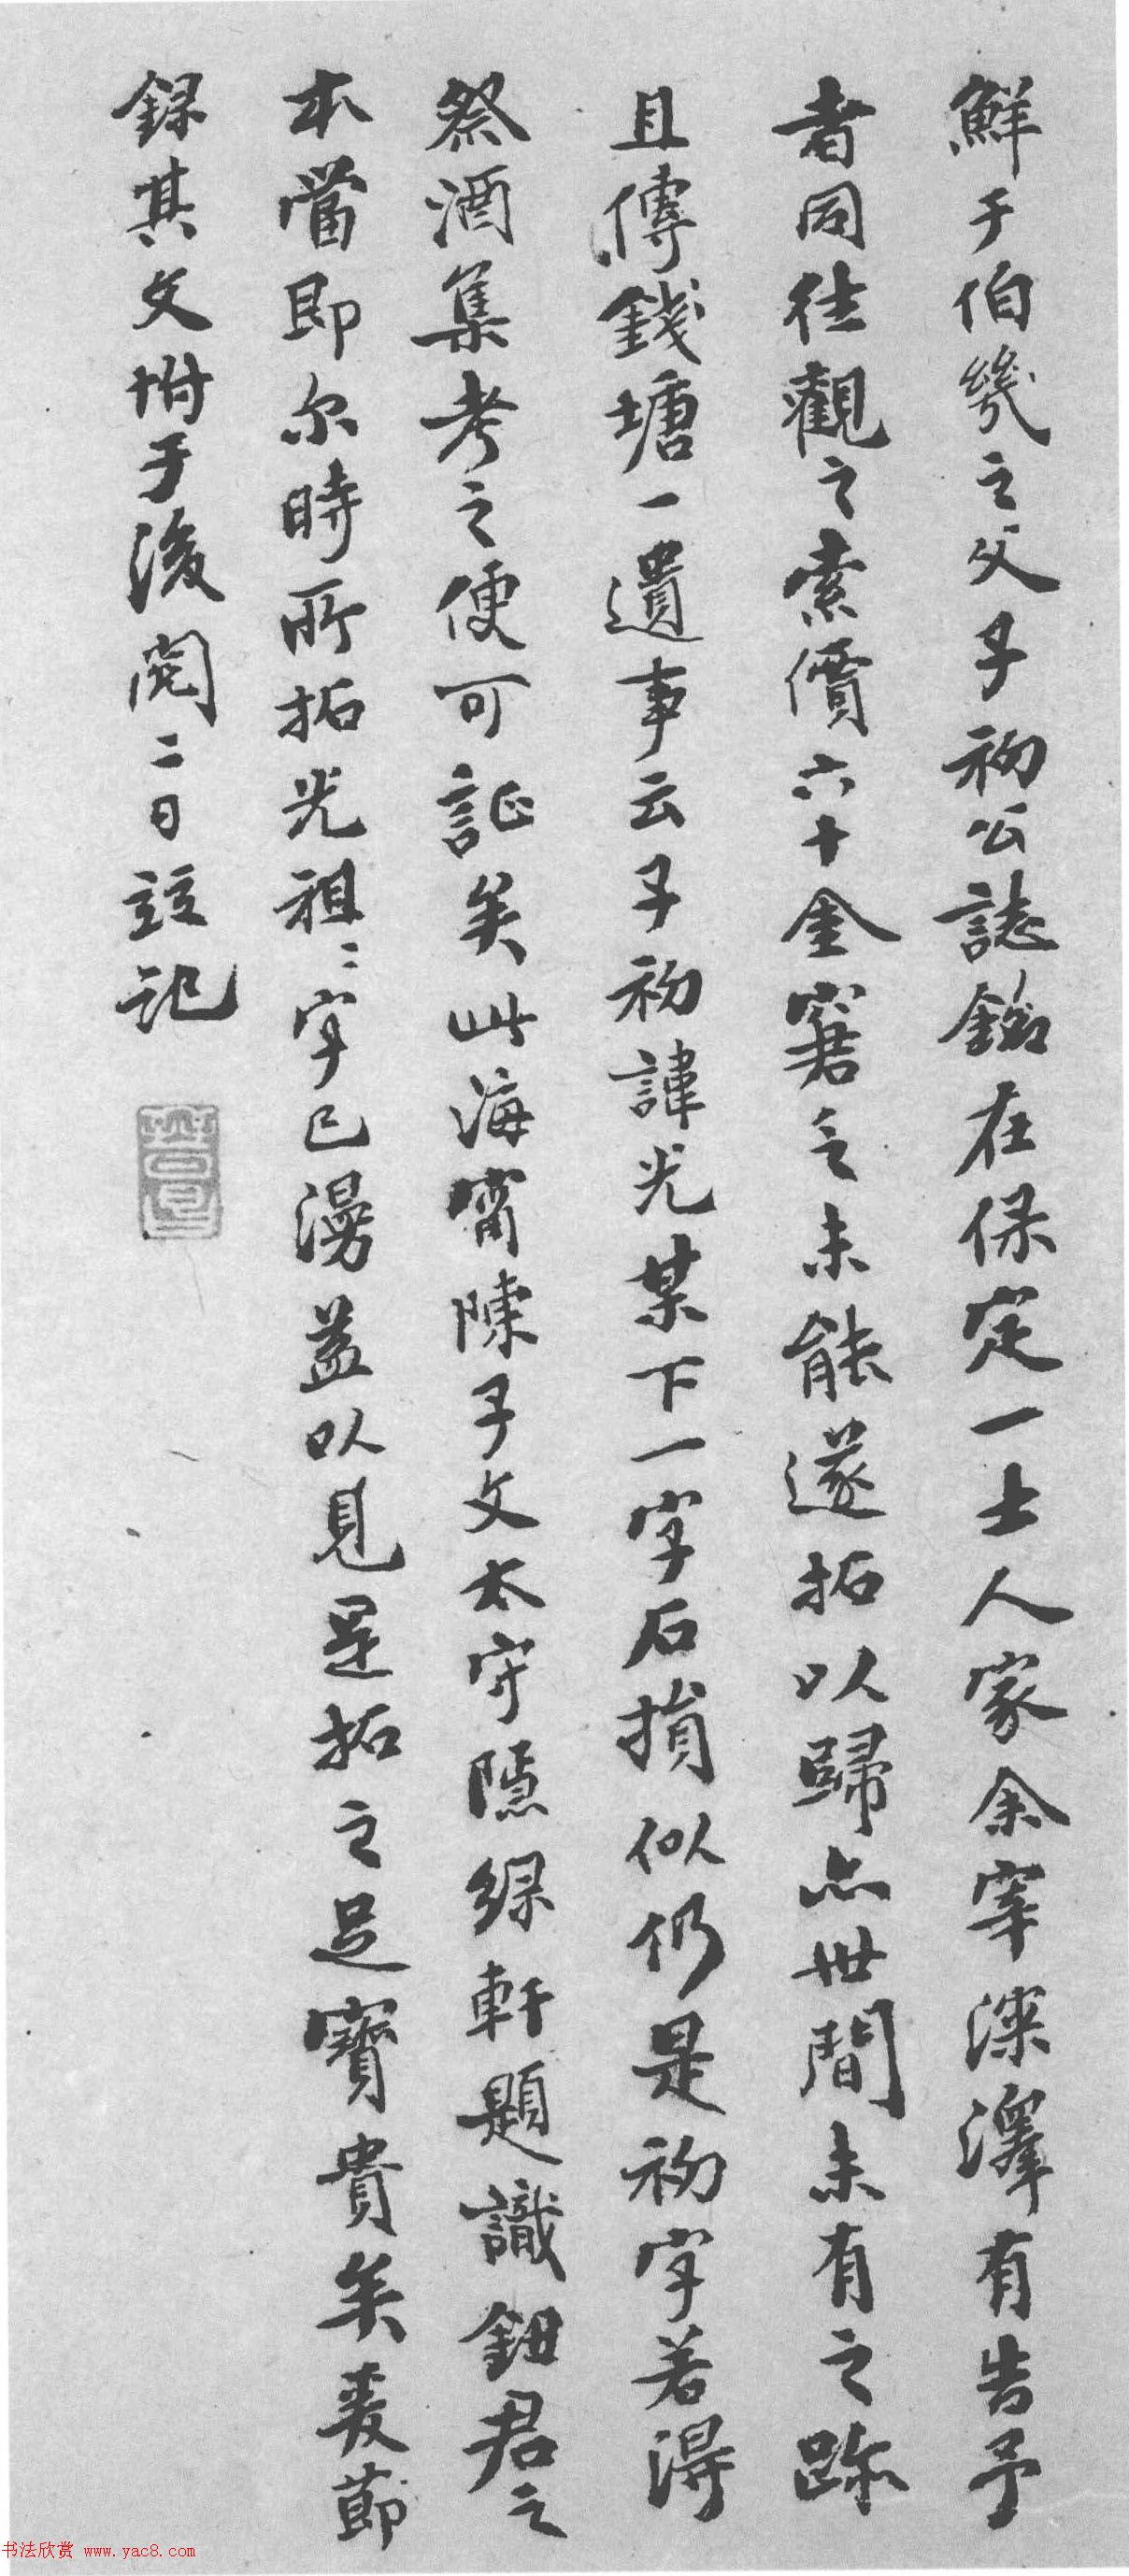 鮮于伯幾之父子初公誌銘在保定一士人家余宰淶澤有告予
者同往觀之索價六十金窘乏未能遂拓以歸亦世間未有之跡
且傳錢塘一遺事云子初諱光某下一字石損似仍是初字若得
祭酒集考之便可証矣此海甯陳子文太守隱綠軒題識鈕君之
本當即尔時所拓光祖二字已漫益以見是拓之足寶貴矣爰節
錄其文坿于後閏二日記
书法欣赏 www.yac8.com